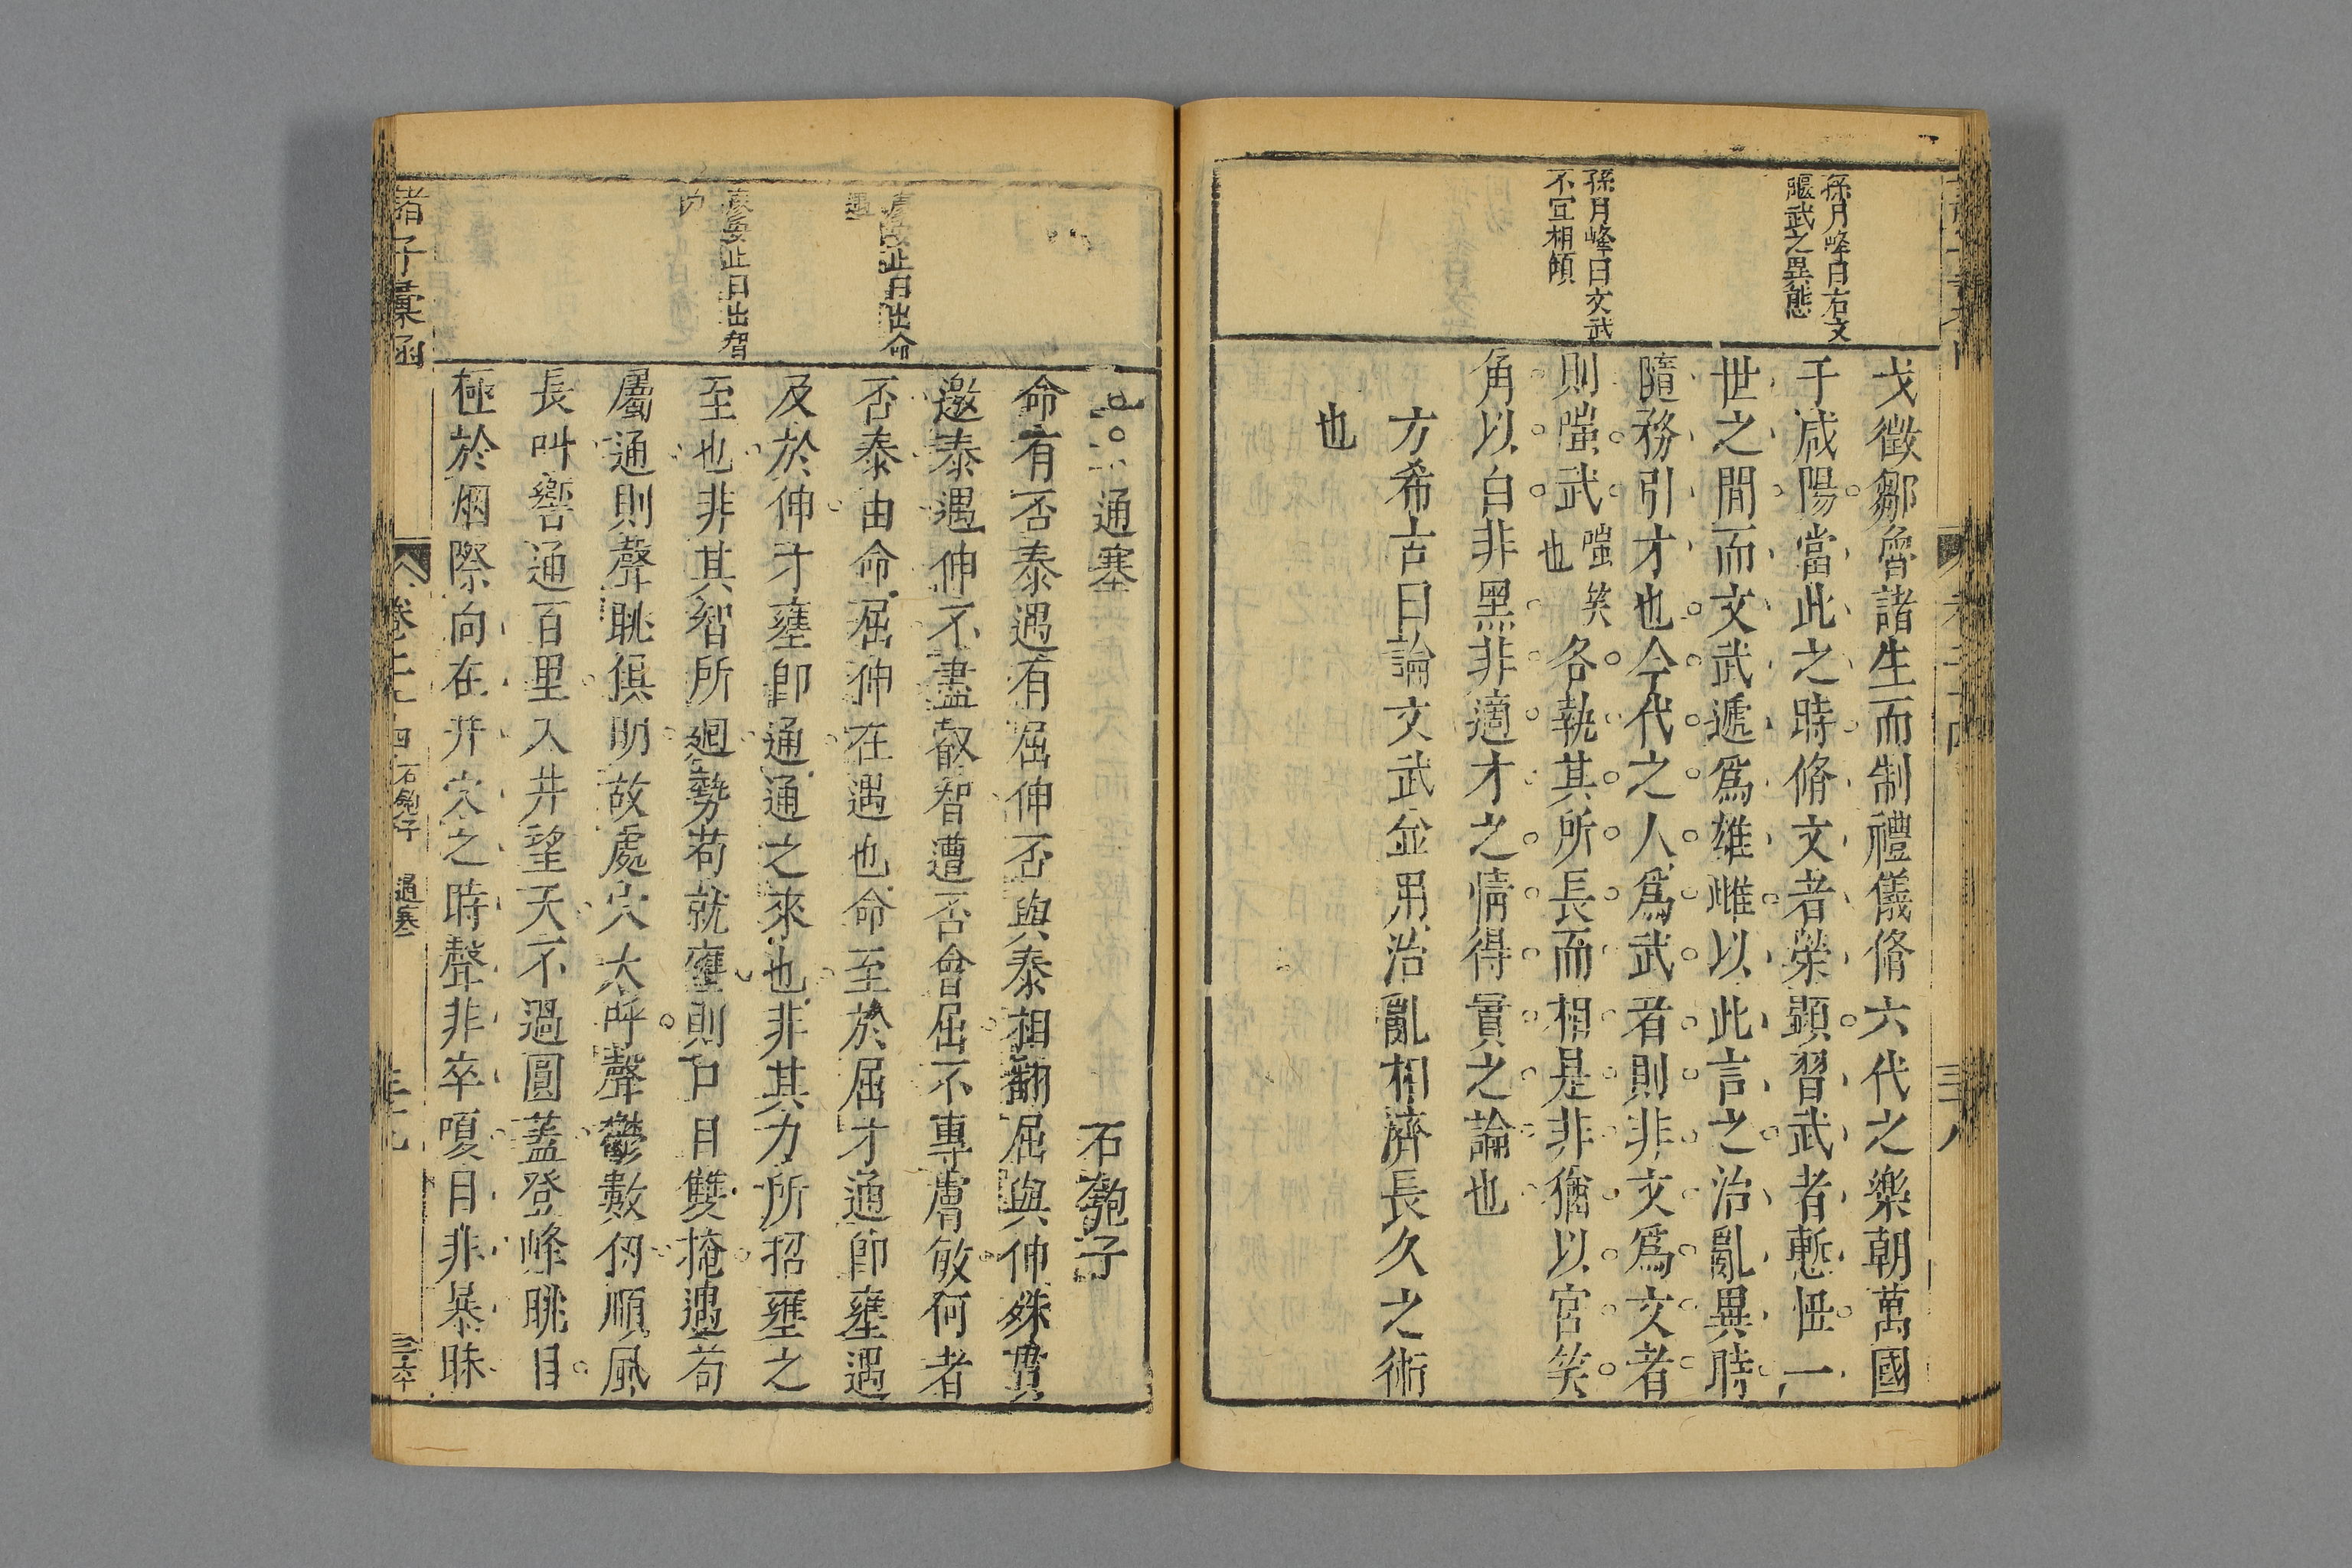 孫月峰曰右文
偃武之異態
孫月峰曰文武
不宜相傾
戈徵鄒魯諸生而制禮儀脩六代之樂朝萬國
于咸陽當此之時脩文者榮顯習武者慙恧一
世之間而文武遞爲雄雌以此言之治亂異時
隨務引才也今代之人爲武者則非文爲文者
則嗤武嗤笑也各執其所長而相是非猶以宮笑
角以白非黑非適才之情得實之論也
方希古曰論文武並用治亂相濟長久之術
也
三十八
止曰出命
遇
安止曰出智
力
通塞
石匏子
命有否泰遇有屈伸否與泰相翻屈與伸殊貫
邀泰遇伸不盡叡智遭否會屈不專膚敏何者
否泰由命屈伸在遇也命至於屈才通卽壅遇
及於伸才壅卽通通之來也非其力所招壅之
至也非其智所迴勢苟就壅則口目雙掩遇苟
屬通則聲眺俱明故處穴大呼聲鬱數仞順風
長叫響通百里入井望天不過圓蓋登峰眺目
極於烟際向在井穴之時聲非卒嗄目非暴昧
諸子彙函
卷二十四
石匏子
通塞
三六